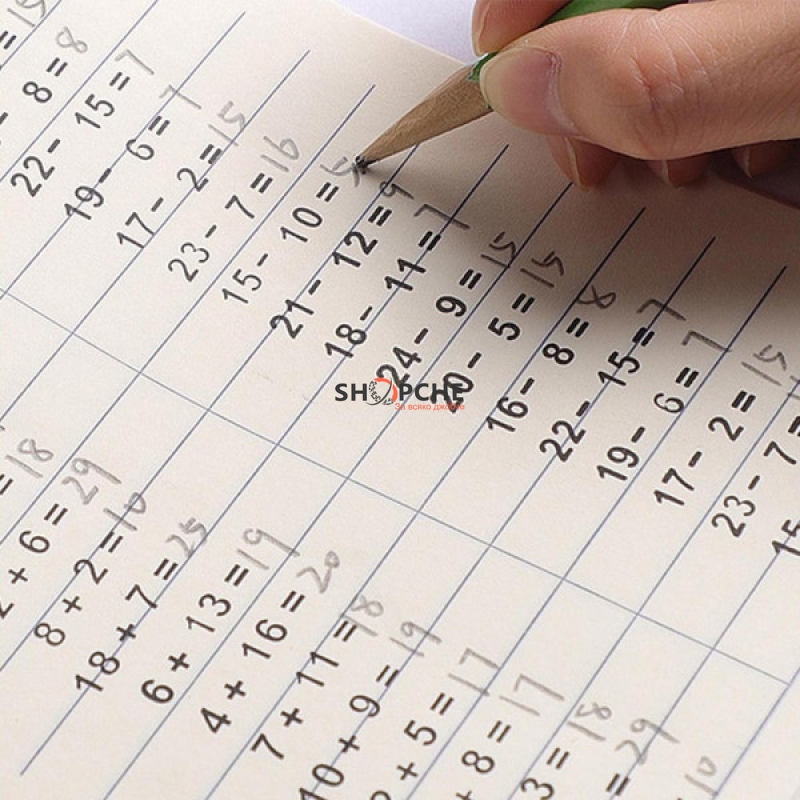 15
- 8 = 8
22- 15 = 7
19- 6 = 7
17- 2 = 15
23- 7 = 16
15- 10 = 5
21- 12 = 9
18- 11 = 7
24- 9 = 15
20- 5 = 15
16- 8 = 8
22- 15 = 7
19- 6 = 7
17- 2 = 15
23- 7 =
15
SHOPCHE
За всяко
= 18
+ 6 = 29
8 + 2 = 10
18 + 7 = 25
6 + 13 = 19
4 + 16 = 20
7 + 11 = 18
10 + 9 = 19
+ 5 = 17
+ 8 = 17
3 = 18
= 29
10